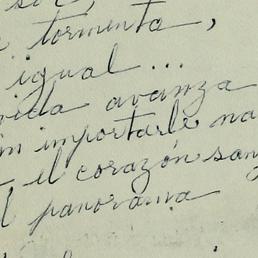 tormenta,
igual...
avanza
importarle na
, el corazón san
panorama